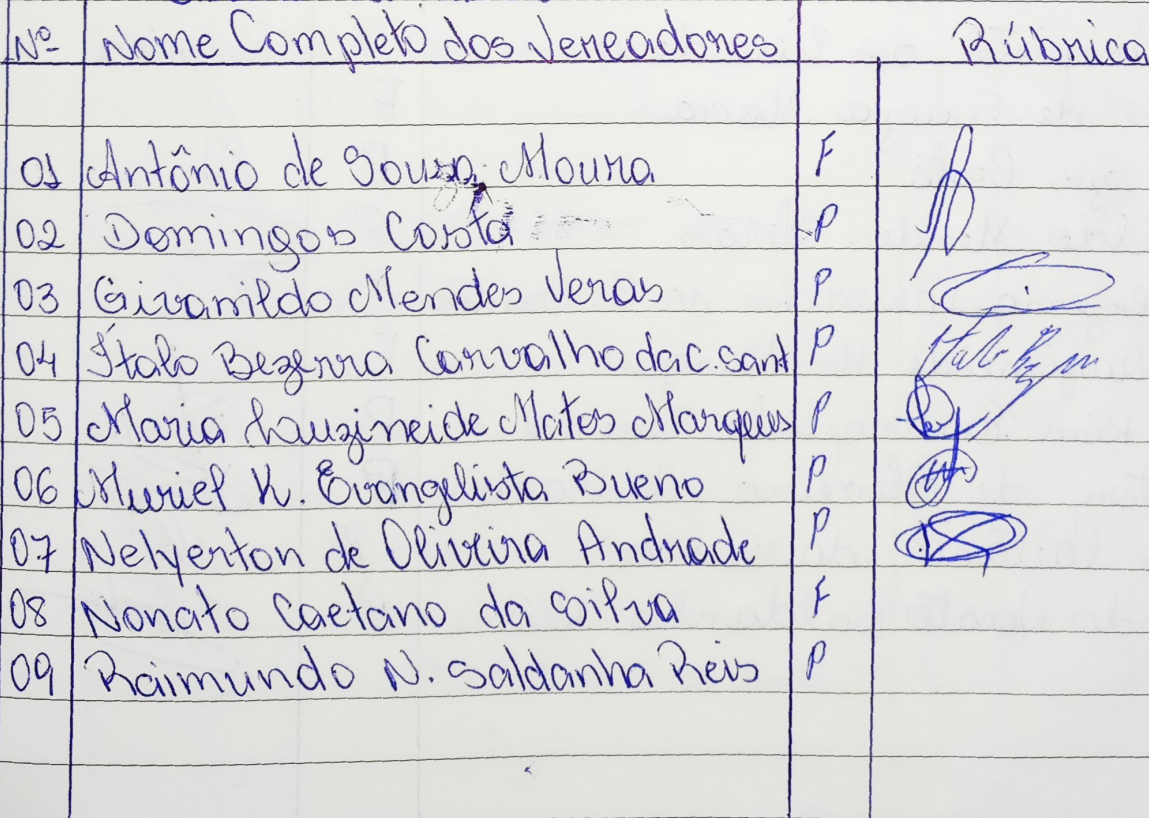 Nº Nome Completo dos Vereadores Rúbrica
01 Antônio de Souza Moura F
02 Domingos Costa P
03 Givanildo Mendes Veras P
04 Ítalo Bezerra Carvalho da C. Sant P
05 Maria Lauzineide Matos Marques P
06 Muriel K. Evangelista Bueno P
07 Nelyerton de Oliveira Andrade P
08 Nonato Caetano da Silva F
09 Raimundo N. Saldanha Reis P